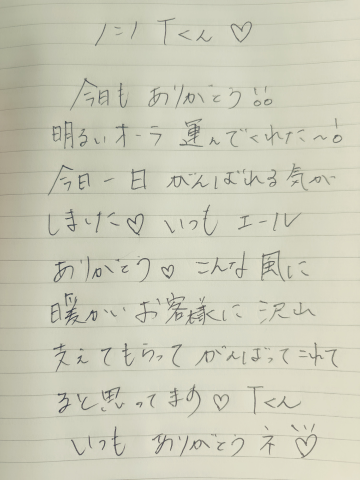 ハニハ Tくん ♡
今日も ありがとう!!
明るいオーラ 運んでくれた〜!
今日一日 がんばれる気が
しました♡ いつも エール
ありがとう♡ こんな風に
暖かいお客様に 沢山
支えてもらって がんばってこれて
ると思ってます♡ Tくん
いつも ありがとう ネ ♡